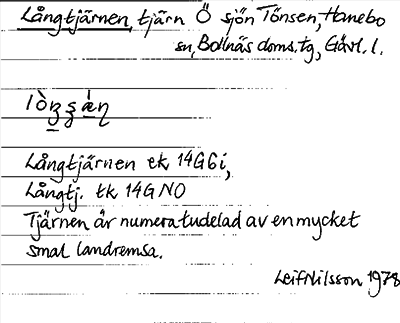 Långtjärnen, tjärn Ö sjön Tönsen, Hanebo
sn, Bollnäs doms.tg, Gävl. l.
Långtjärnen ek 14G6i,
Långtj. tk 14G NO
Tjärnen är numera tudelad av en mycket
smal landremsa.
Leif Nilsson 1978